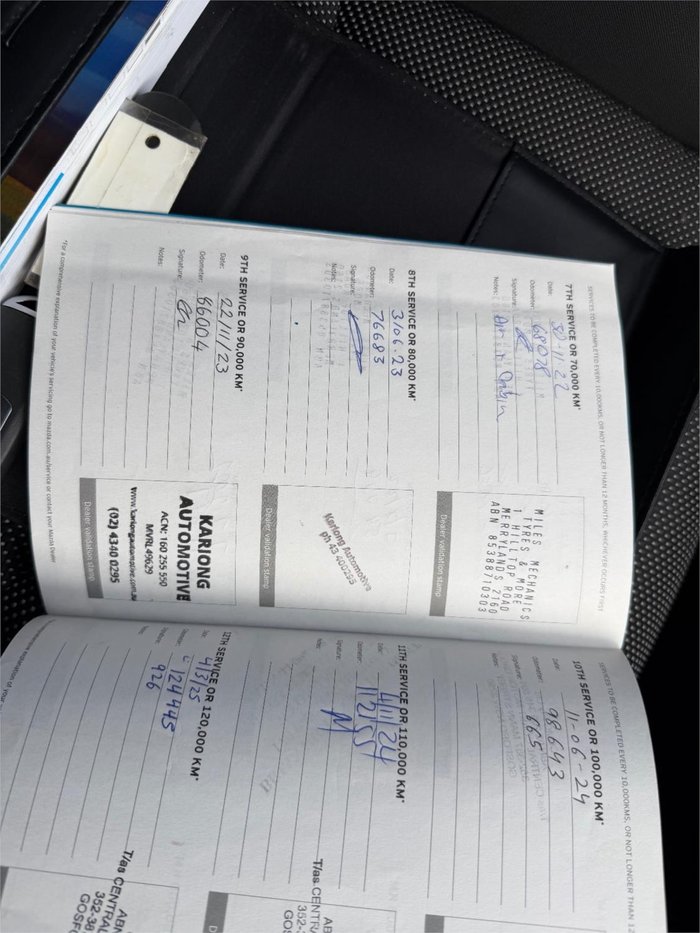 SERVICES TO BE COMPLETED EVERY 10,000KMS, OR NOT LONGER THAN 12 MONTHS, WHICHEVER OCCURS FIRST
7TH SERVICE OR 70,000 KM*
Date: 30-11-22
Odometer: 68078
Signature:
Notes:
MILES MECHANICS
TYRES & MORE
1 HILLTOP ROAD
MERRYLANDS 2160
ABN 85388710303
Dealer validation stamp
8TH SERVICE OR 80,000 KM*
Date: 3/06.23
Odometer: 76683
Signature:
Notes:
Kariong Automotive
ph 43 400295
Dealer validation stamp
9TH SERVICE OR 90,000 KM*
Date: 22/11/23
Odometer: 86004
Signature:
Notes:
KARIONG
AUTOMOTIVE
ACN: 160 255 550
MVRL 49629
www.kariongautomotive.com.au
(02) 4340 0295
Dealer validation stamp
*For a comprehensive explanation of your vehicle's servicing go to mazda.com.au/service or contact your Mazda Dealer
SERVICES TO BE COMPLETED EVERY 10,000KMS, OR NOT LONGER THAN 12
10TH SERVICE OR 100,000 KM*
Date: 11-06-24
Odometer: 98643
Signature: 665
Notes:
11TH SERVICE OR 110,000 KM*
Date: 4/11/24
Odometer: 112155
Signature:
Notes:
T/as CENTRA
352-3
GOS
12TH SERVICE OR 120,000 KM*
Date: 4/3/25
124445
926
ABN
T/as CENTRAL
352-38
GOSFO
explanation of your